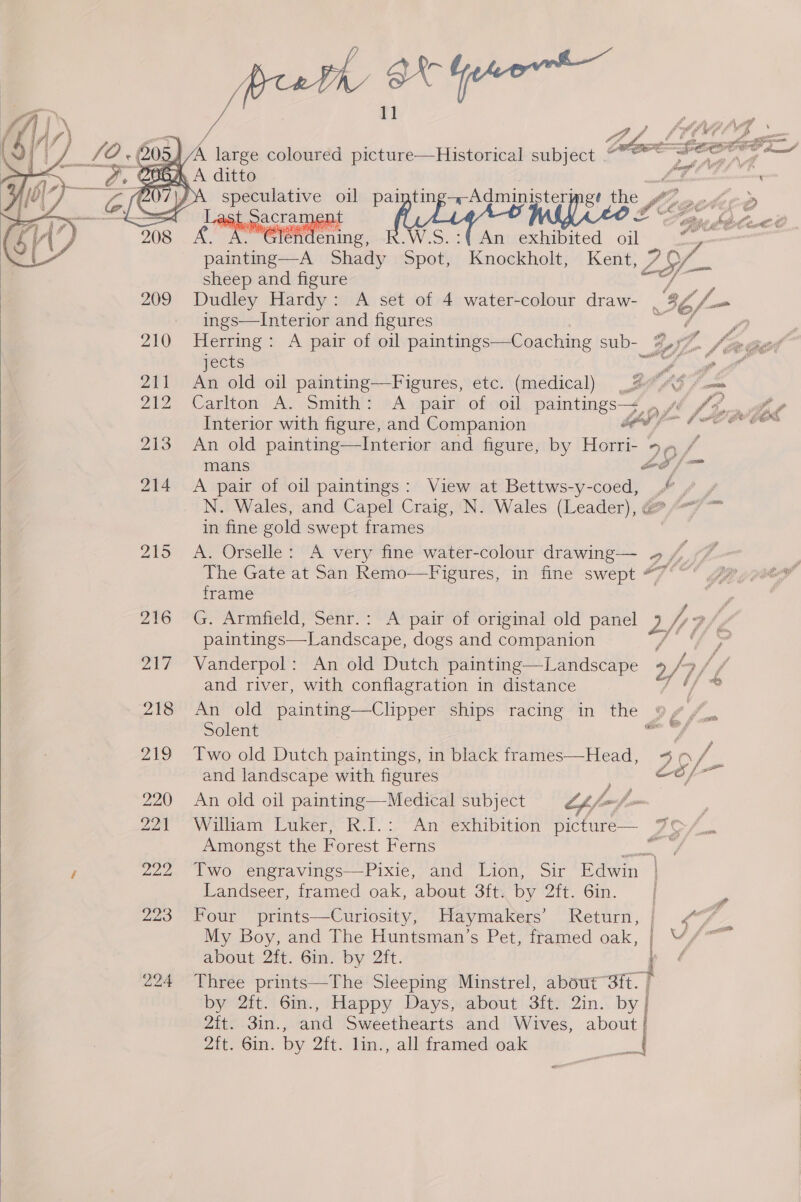 11
205 A large coloured picture—Historical subject
206 A ditto
207 A speculative oil painting—Administeringt the
Last Sacrament
208 A. A. Glendening, R.W.S.: An exhibited oil
painting—A Shady Spot, Knockholt, Kent,
sheep and figure
209 Dudley Hardy: A set of 4 water-colour draw-
ings—Interior and figures
210 Herring: A pair of oil paintings—Coaching sub-
jects
211 An old oil painting—Figures, etc. (medical)
212 Carlton A. Smith: A pair of oil paintings—
Interior with figure, and Companion
213 An old painting—Interior and figure, by Horri-
mans
214 A pair of oil paintings: View at Bettws-y-coed,
N. Wales, and Capel Craig, N. Wales (Leader),
in fine gold swept frames
215 A. Orselle: A very fine water-colour drawing—
The Gate at San Remo—Figures, in fine swept
frame
216 G. Armfield, Senr.: A pair of original old panel
paintings—Landscape, dogs and companion
217 Vanderpol: An old Dutch painting—Landscape
and river, with conflagration in distance
218 An old painting—Clipper ships racing in the
Solent
219 Two old Dutch paintings, in black frames—Head,
and landscape with figures
220 An old oil painting—Medical subject
221 William Luker, R.I.: An exhibition picture—
Amongst the Forest Ferns
222 Two engravings—Pixie, and Lion, Sir Edwin
Landseer, framed oak, about 3ft. by 2ft. 6in.
223 Four prints—Curiosity, Haymakers' Return,
My Boy, and The Huntsman's Pet, framed oak,
about 2ft. 6in. by 2ft.
224 Three prints—The Sleeping Minstrel, about 3ft.
by 2ft. 6in., Happy Days, about 3ft. 2in. by
2ft. 3in., and Sweethearts and Wives, about
2ft. 6in. by 2ft. 1in., all framed oak